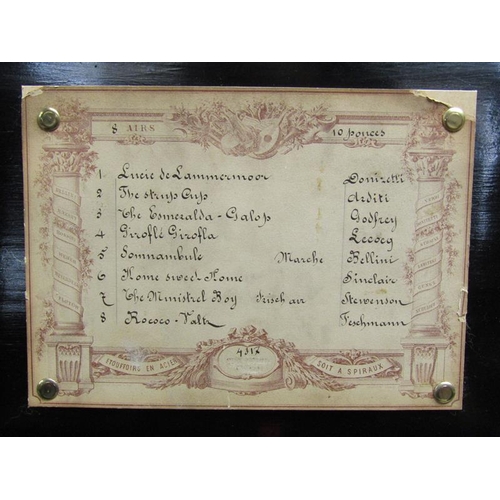 8 AIRS 10 pouces
1 Lucie de Lammermoor Donizetti
2 The strup Cup Arditi
3 The Esmeralda-Galop Godfrey
4 Giroflé Girofla Lecocq
5 Somnambule Marche Bellini
6 Home sweet Home Sinclair
7 The Minstrel Boy Irisch air Stewenson
8 Rococo-Valtz Teschmann
ETOUFFOIRS EN ACIER SOIT A SPIRAUX